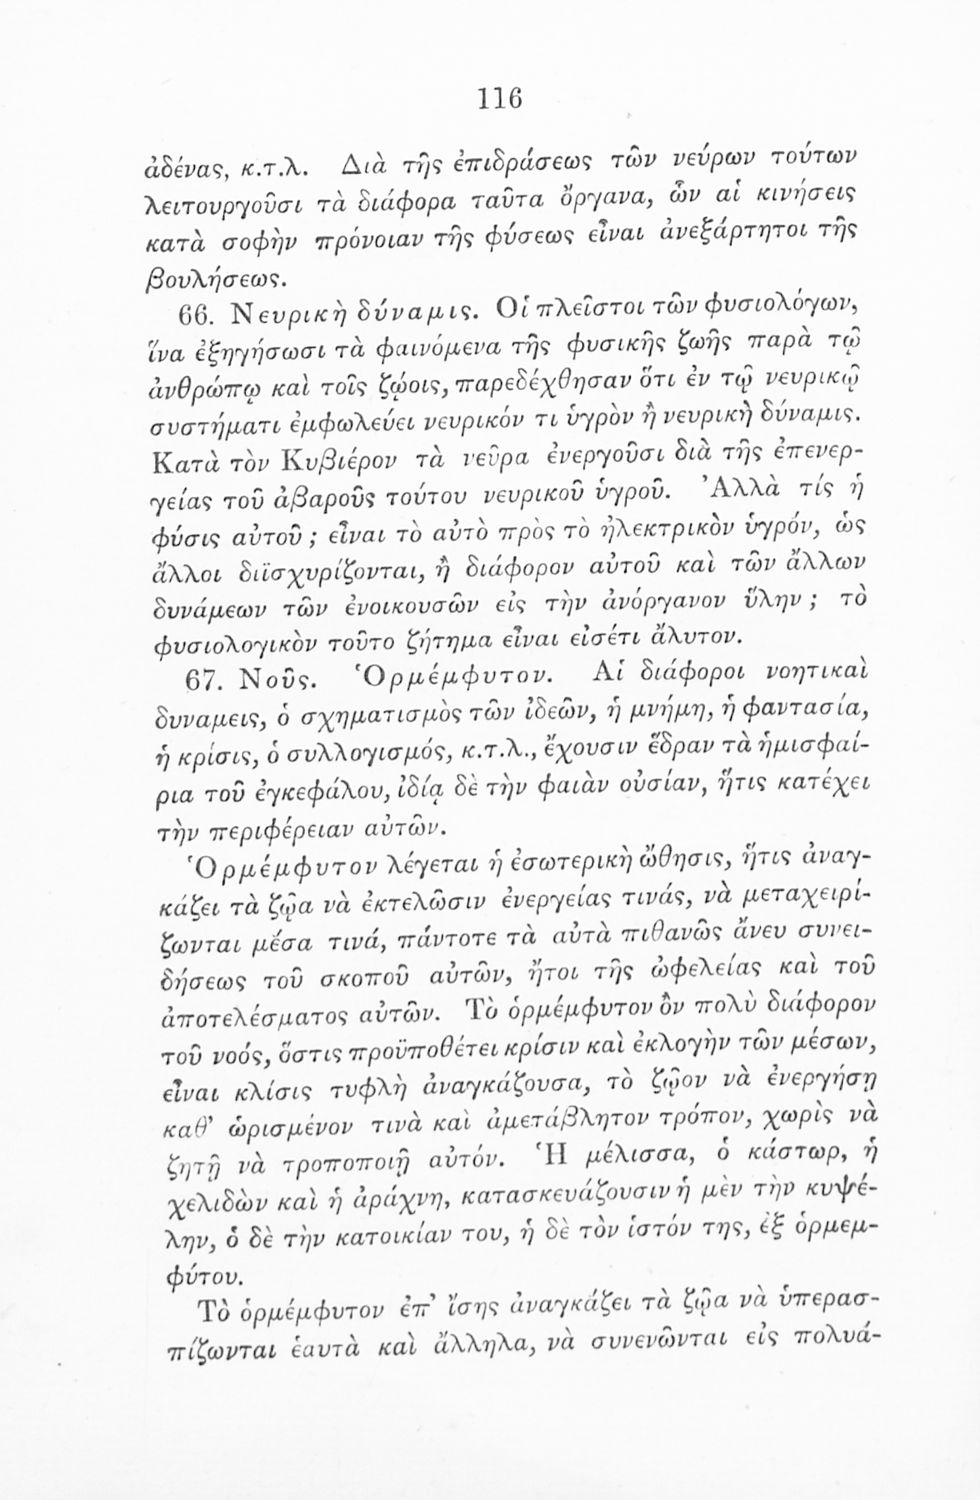 116
ἀδένας, κ.τ.λ. Διὰ τῆς ἐπιδράσεως τῶν νεύρων τούτων
λειτουργοῦσι τὰ διάφορα ταῦτα ὄργανα, ὧν αἱ κινήσεις
κατὰ σοφὴν πρόνοιαν τῆς φύσεως εἶναι ἀνεξάρτητοι τῆς
βουλήσεως.
66. Νευρικὴ δύναμις. Οἱ πλεῖστοι τῶν φυσιολόγων,
ἵνα ἐξηγήσωσι τὰ φαινόμενα τῆς φυσικῆς ζωῆς παρὰ τῷ
ἀνθρώπῳ καὶ τοῖς ζῴοις, παρεδέχθησαν ὅτι ἐν τῷ νευρικῷ
συστήματι ἐμφωλεύει νευρικόν τι ὑγρὸν ἢ νευρικὴ δύναμις.
Κατὰ τὸν Κυβιέρον τὰ νεῦρα ἐνεργοῦσι διὰ τῆς ἐπενερ-
γείας τοῦ ἀβαροῦς τούτου νευρικοῦ ὑγροῦ. Ἀλλὰ τίς ἡ
φύσις αὐτοῦ; εἶναι τὸ αὐτὸ πρὸς τὸ ἠλεκτρικὸν ὑγρόν, ὡς
ἄλλοι διϊσχυρίζονται, ἢ διάφορον αὐτοῦ καὶ τῶν ἄλλων
δυνάμεων τῶν ἐνοικουσῶν εἰς τὴν ἀνόργανον ὕλην; τὸ
φυσιολογικὸν τοῦτο ζήτημα εἶναι εἰσέτι ἄλυτον.
67. Νοῦς. Ὁρμέμφυτον. Αἱ διάφοροι νοητικαὶ
δυναμεις, ὁ σχηματισμὸς τῶν ἰδεῶν, ἡ μνήμη, ἡ φαντασία,
ἡ κρίσις, ὁ συλλογισμός, κ.τ.λ., ἔχουσιν ἕδραν τὰ ἡμισφαί-
ρια τοῦ ἐγκεφάλου, ἰδίᾳ δὲ τὴν φαιὰν οὐσίαν, ἥτις κατέχει
τὴν περιφέρειαν αὐτῶν.
Ὁρμέμφυτον λέγεται ἡ ἐσωτερικὴ ὤθησις, ἥτις ἀναγ-
κάζει τὰ ζῷα νὰ ἐκτελῶσιν ἐνεργείας τινάς, νὰ μεταχειρί-
ζωνται μέσα τινά, πάντοτε τὰ αὐτὰ πιθανῶς ἄνευ συνει-
δήσεως τοῦ σκοποῦ αὐτῶν, ἤτοι τῆς ὠφελείας καὶ τοῦ
ἀποτελέσματος αὐτῶν. Τὸ ὁρμέμφυτον ὂν πολὺ διάφορον
τοῦ νοός, ὅστις προϋποθέτει κρίσιν καὶ ἐκλογὴν τῶν μέσων,
εἶναι κλίσις τυφλὴ ἀναγκάζουσα, τὸ ζῷον νὰ ἐνεργήσῃ
καθ’ ὡρισμένον τινὰ καὶ ἀμετάβλητον τρόπον, χωρὶς νὰ
ζητῇ νὰ τροποποιῇ αὐτόν. Ἡ μέλισσα, ὁ κάστωρ, ἡ
χελιδὼν καὶ ἡ ἀράχνη, κατασκευάζουσιν ἡ μὲν τὴν κυψέ-
λην, ὁ δὲ τὴν κατοικίαν του, ἡ δὲ τὸν ἱστόν της, ἐξ ὁρμεμ-
φύτου.
Τὸ ὁρμέμφυτον ἐπ’ ἴσης ἀναγκάζει τὰ ζῷα νὰ ὑπερασ-
πίζωνται ἑαυτὰ καὶ ἄλληλα, νὰ συνενῶνται εἰς πολυά-